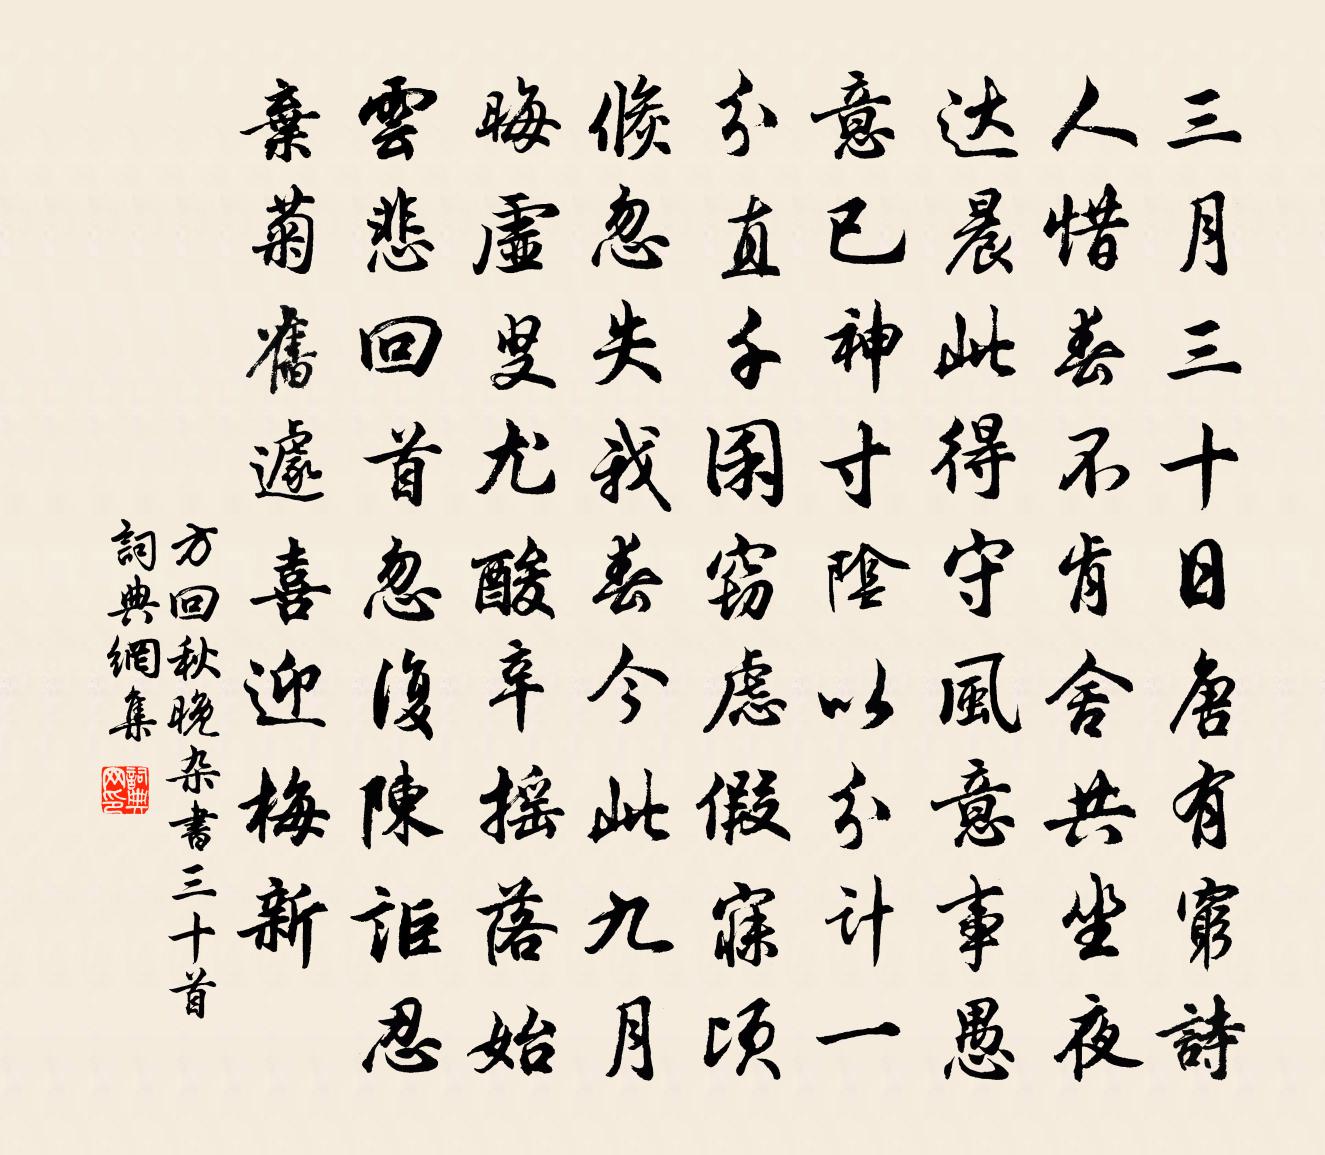 三月三十日唐有窮詩
人惜春不肯舍共坐夜
达晨此得守風意事愚
意已神寸陰以分计一
分直千囷窃慮假寐頃
倏忽失我春今此九月
晦虛叟尤酸辛摇落始
雲悲回首忽復陳詎忍
棄菊舊遽喜迎梅新
方回秋晚杂書三十首
詞典網集
詞典网印